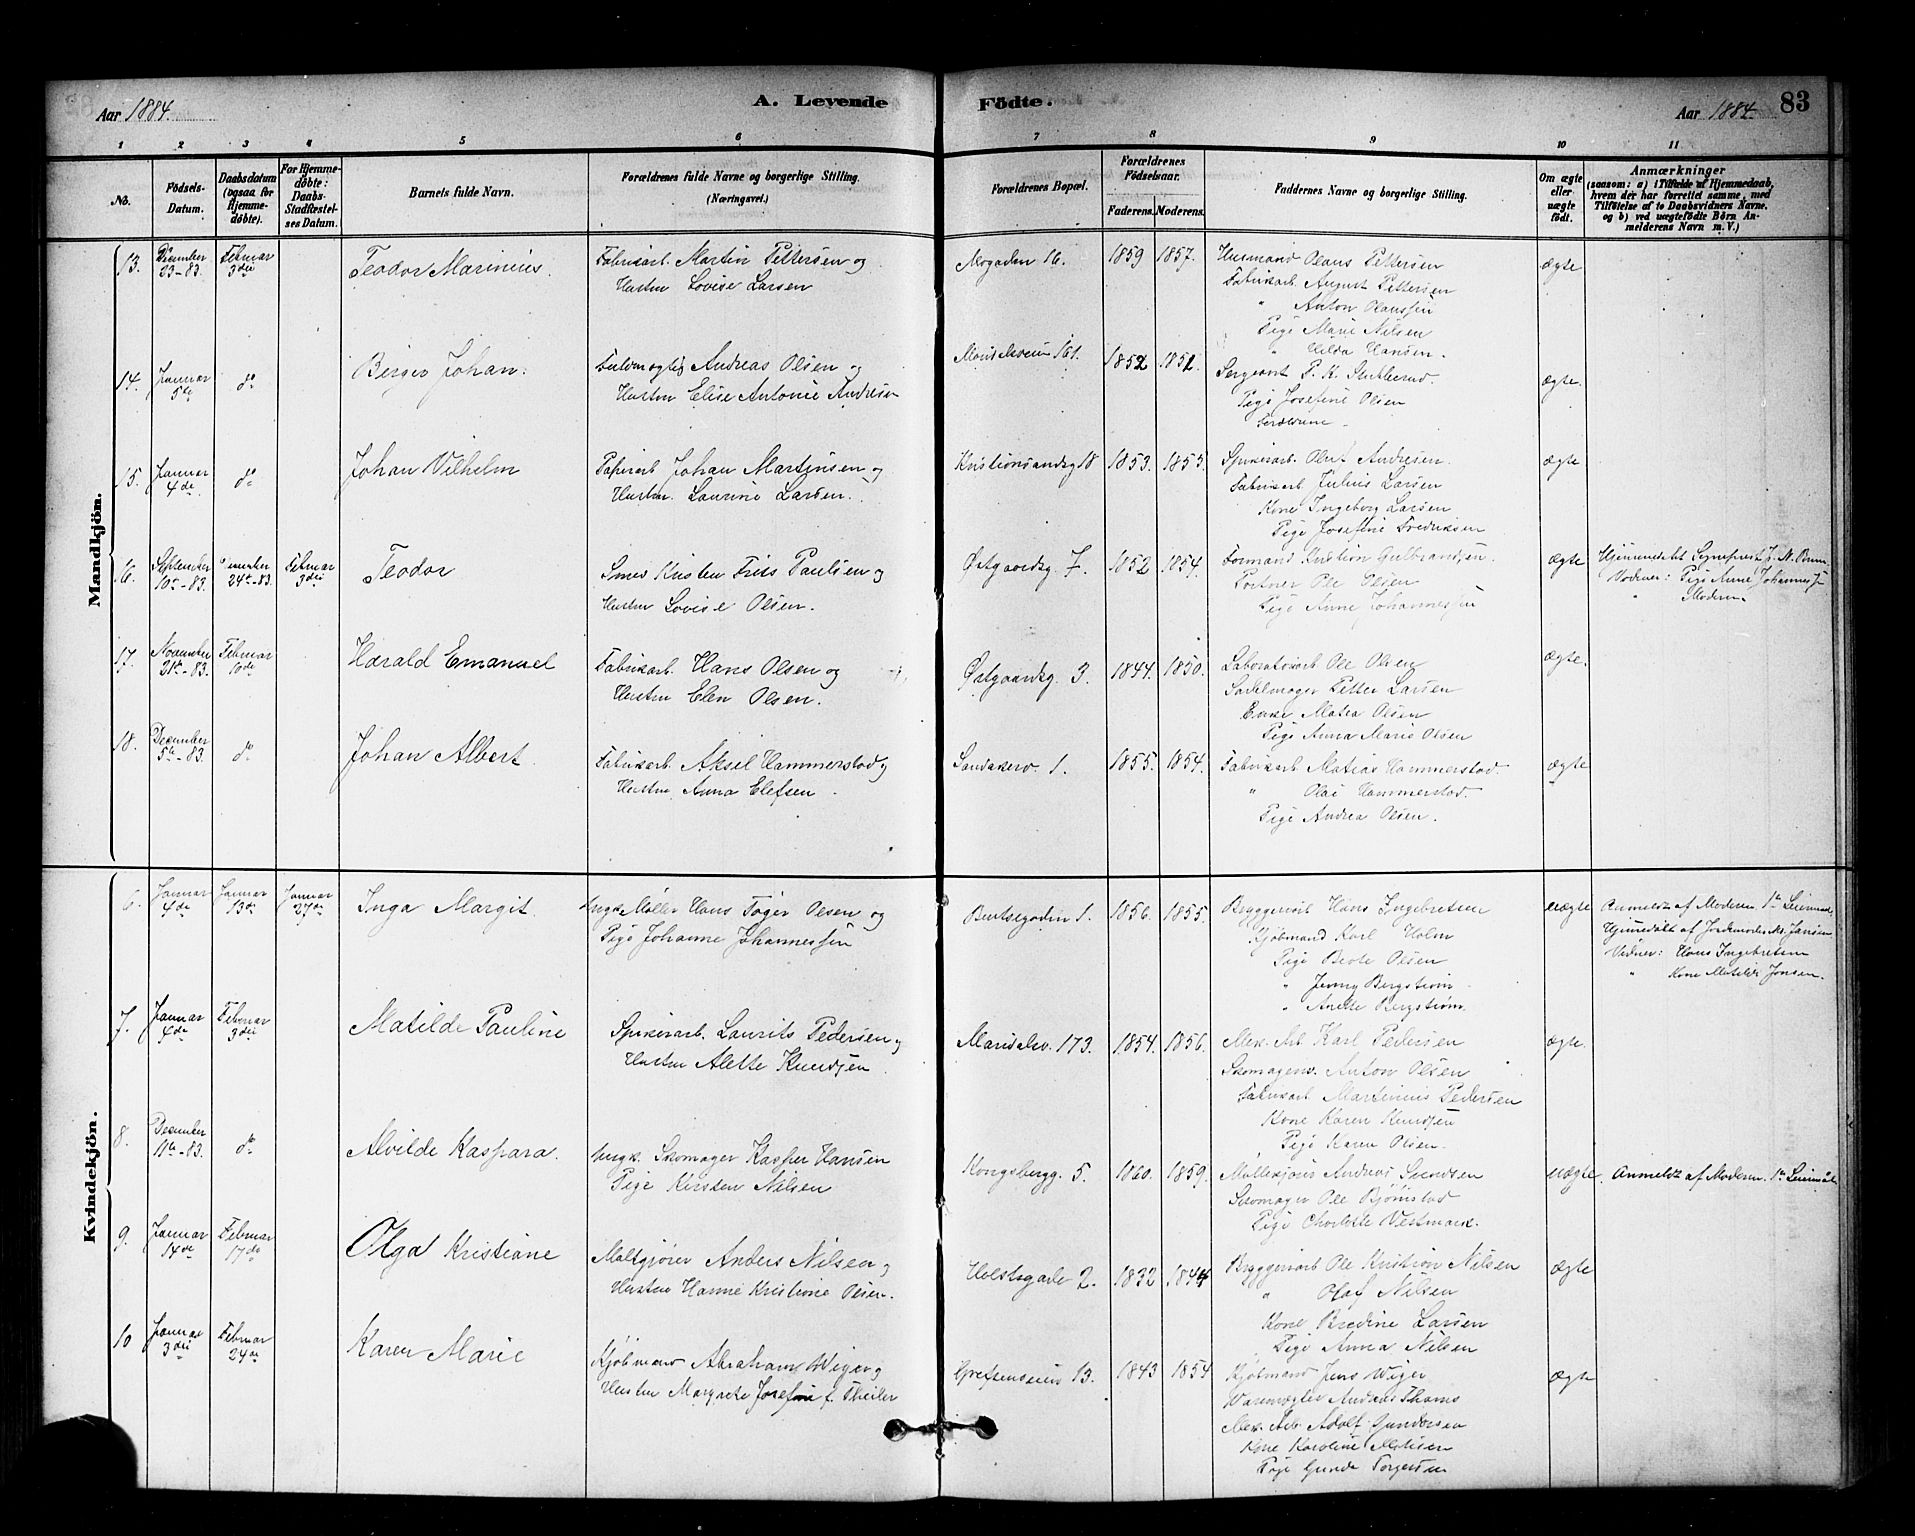 Aar 1884. A. Levende Födte. Aar 1884. 83
1 2 3 4 5 6 7 8 9 10 11
No. Födsels-Datum. Daabsdatum (ogsaa for Hjemmedöbte). For Hjemmedöbte: Daabs-Stadfæstelses Datum. Barnets fulde Navn. Forældrenes fulde Navne og borgerlige Stilling. (Næringsvei.) Forældrenes Bopæl. Forældrenes Födselsaar. Faderens. Moderens. Faddernes Navne og borgerlige Stilling. Om ægte eller uægte födt. Anmærkninger (saasom: a) i Tilfælde af Hjemmedaab, hvem der har forrettet samme, med Tilföielse af to Daabsvidners Navne, og b) ved uægtefödte Börn Anmelderens Navn m. V.)
Mandkjön.
13. December 23-83. Februar 3die Teodor Marinius. Fabrikarb. Martin Pettersen og
Hustru Lovise Larsen
Mogaden 16. 1859 1857. Husmand Olaus Pettersen ægte
Fabrikarb. August Pettersen
" Anton Olaussen
Pige Marie Nilsen
" Hilda Hansen.
14. Januar 5te do Birger Johan. Fuldmægtig Andreas Olsen og
Hustru Elise Antonie Andresen
161. 1852 1852. Sergeant P. K. Stubberud. ægte.
Pige Josefine Olsen
Forældrene
15. Januar 4de do Johan Vilhelm Papirarb Johan Martinsen og
Hustru Laurine Larsen.
Kristiansandsg 18 1853. 1855. Spikerarb. Olut Andresen. ægte
Fabrikarb Julius Larsen
Kone Ingeborg Larsen
Pige Josefine Fredriksen
16. September 10de-83. December 24de-83. Februar 3die Teodor Smed Kristen Fries Paulsen og
Hustru Lovise Olsen.
Østgaardsg 7. 1852 1854. Formand Kristian Gulbrandsen. ægte Hjemmedøbt Sogneprest J. N. Brun
Portner Ole Olsen Vidner: Pige Anne Johannesen
Pige Anne Johannessen " Moderen.
17. November 21de-83. Februar 10de Harald Emanuel Fabrikarb. Hans Olsen og
Hustru Elen Olsen.
Østgaardsg. 3. 1844. 1850. Laboratoriarb Ole Olsen ægte.
Sadelmager Petter Larsen
Enke Matea Olsen
Pige Anna Marie Olsen
18. December 5te-83. do Johan Albert. Fabrikarb. Aksel Hammerstad og
Hustru Anna Elefsen.
Sandakerv. 1. 1855. 1854. Fabrikarb Matias Hammerstad. ægte
" Olai Hammerstad.
Pige Andrea Olsen.
Kvindekjön.
6. Januar 4de Januar 13de Januar 27de Inga Margit Ungk. Møller Hans Tøger Olsen og
Pige Johanne Johannessen
Bentsegaden 1. 1856. 1855. Bryggeriarb Hans Ingebretsen uægte Anmeldt af Moderen. 1te Leiermaal
Kjøbmand Karl Holm Hjemmedøbt af Jordemoder Jansen
Pige Beate Olsen Vidner: Hans Ingebretsen
" Jenny Bergstrøm " Kone Matilde Jonsen.
" Anette Bergstrøm.
7. Januar 4de Februar 3die Matilde Pauline Spikerarb. Laurits Pedersen og
Hustru Alette Knudsen
Maridalsv. 173. 1854. 1856. Mek. Arb Karl Pedersen ægte.
Skomagersv. Anton Olsen
Fabrikarb Martinius Pedersen
Kone Karen Knudsen
Pige Karen Olsen.
8. December 11te-83. do Alvilde Kaspara. Ungk. Skomager Kasper Hansen
Pige Kirsten Nilsen
Kongsbergg. 5. 1860. 1859. Andreas Svendsen uægte. Anmeldt af Moderen. 1te Leiermaal
Skomager Ole Bjørnstad
Pige Charlotte Vestmark.
9. Januar 14de Februar 17de Olga Kristiane Maltgjører Anders Nilsen og
Hustru Hanne Kristiane Olsen.
Holstsgade 2. 1832 1844 Bryggeriarb Ole Kristian Nilsen ægte
" Olaf Nilsen
Kone Bredine Larsen
Pige Anna Nilsen
10 Januar 3die Februar 24de Karen Marie Kjøbmand Abraham Wiger og
Hustru Margrete Josefine f. Theiler
Grefsenveien 13. 1843 1854 Kjøbmand Jens Wiger ægte
Andreas Thams
Mek. Arb. Adolf Gundersen
Kone Karoline Madsen
Pige Gunda Torgersen